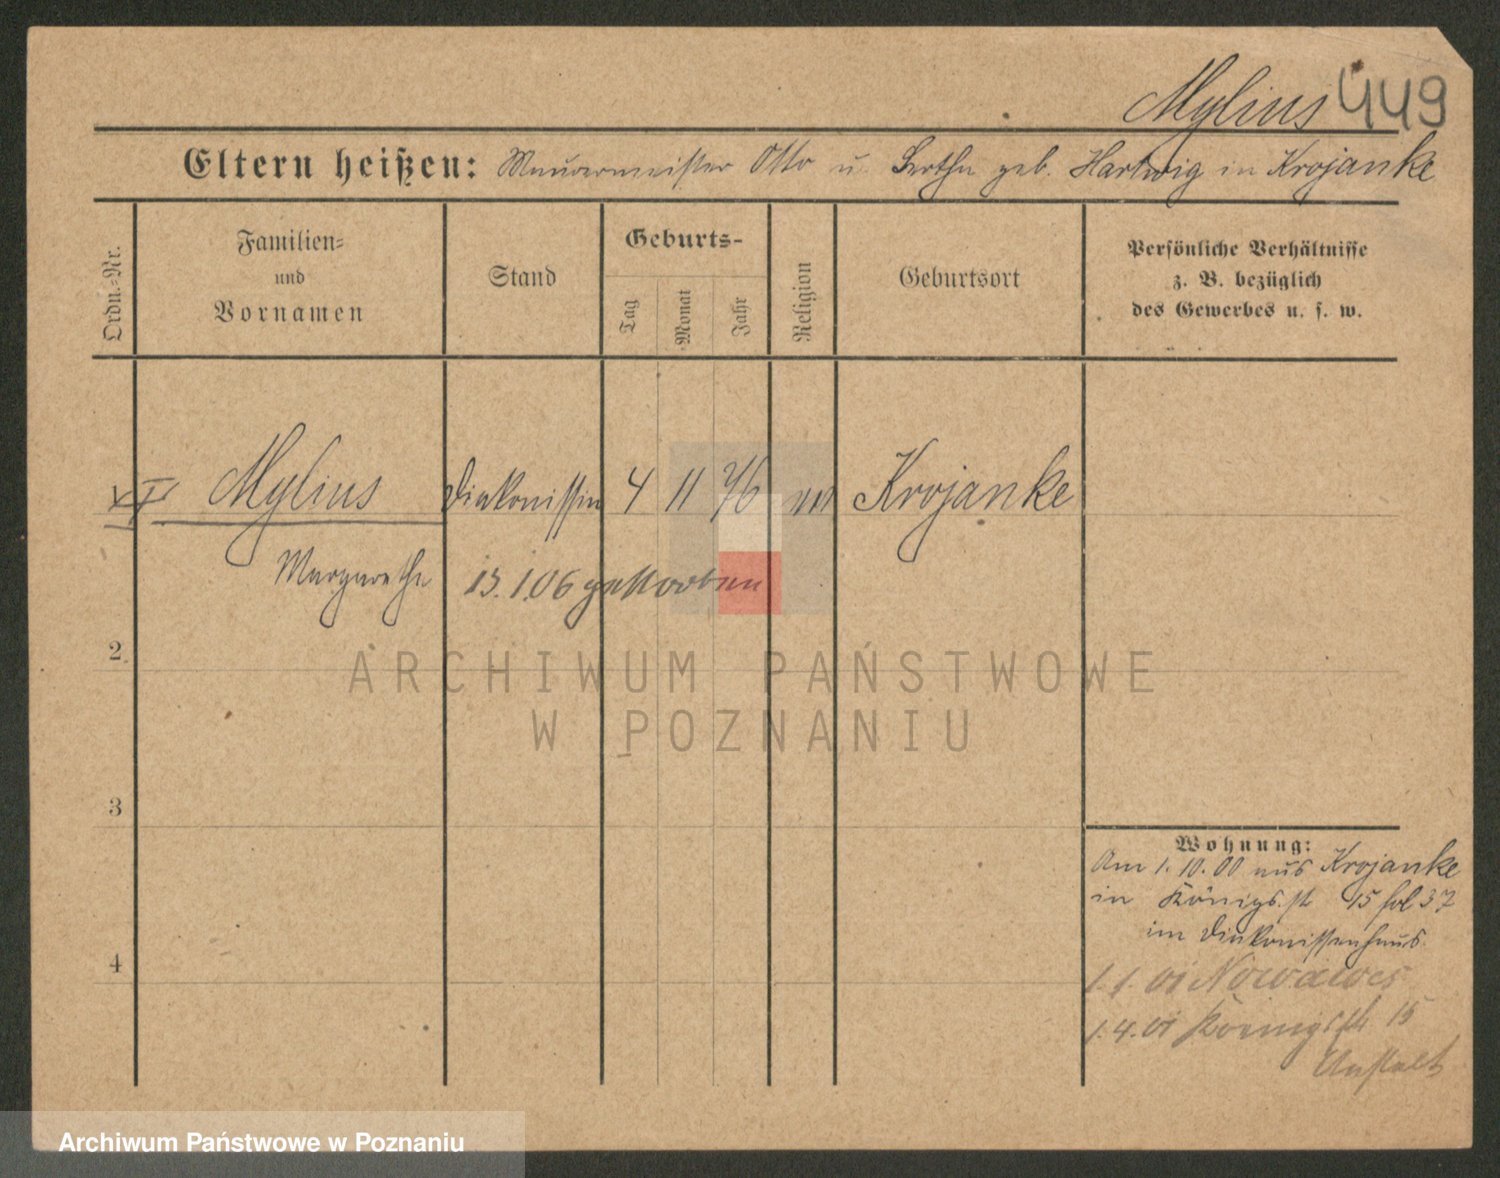 Mylius 449
Eltern heißen: Maurermeister Otto u. Bertha geb. Hartwig in Krojanke
Ordn.-Nr.
Familien-
und
Vornamen
Stand
Geburts-
Tag
Monat
Jahr
Religion
Geburtsort
Persönliche Verhältnisse
z. B. bezüglich
des Gewerbes u. s. w.
Mylius Diakonissin 4 11 76 Krojanke
Margarethe 13.1.06 gestorben
2
ARCHIWUM PAŃSTWOWE
W POZNANIU
3
4
Wohnung:
Am 1.10.00 aus Krojanke
in Königsst 15 fol 37
im Diakonissenhaus.
1.1.01 Nowawes
1.4.01 Königsstr 15
Anstalt
Archiwum Państwowe w Poznaniu